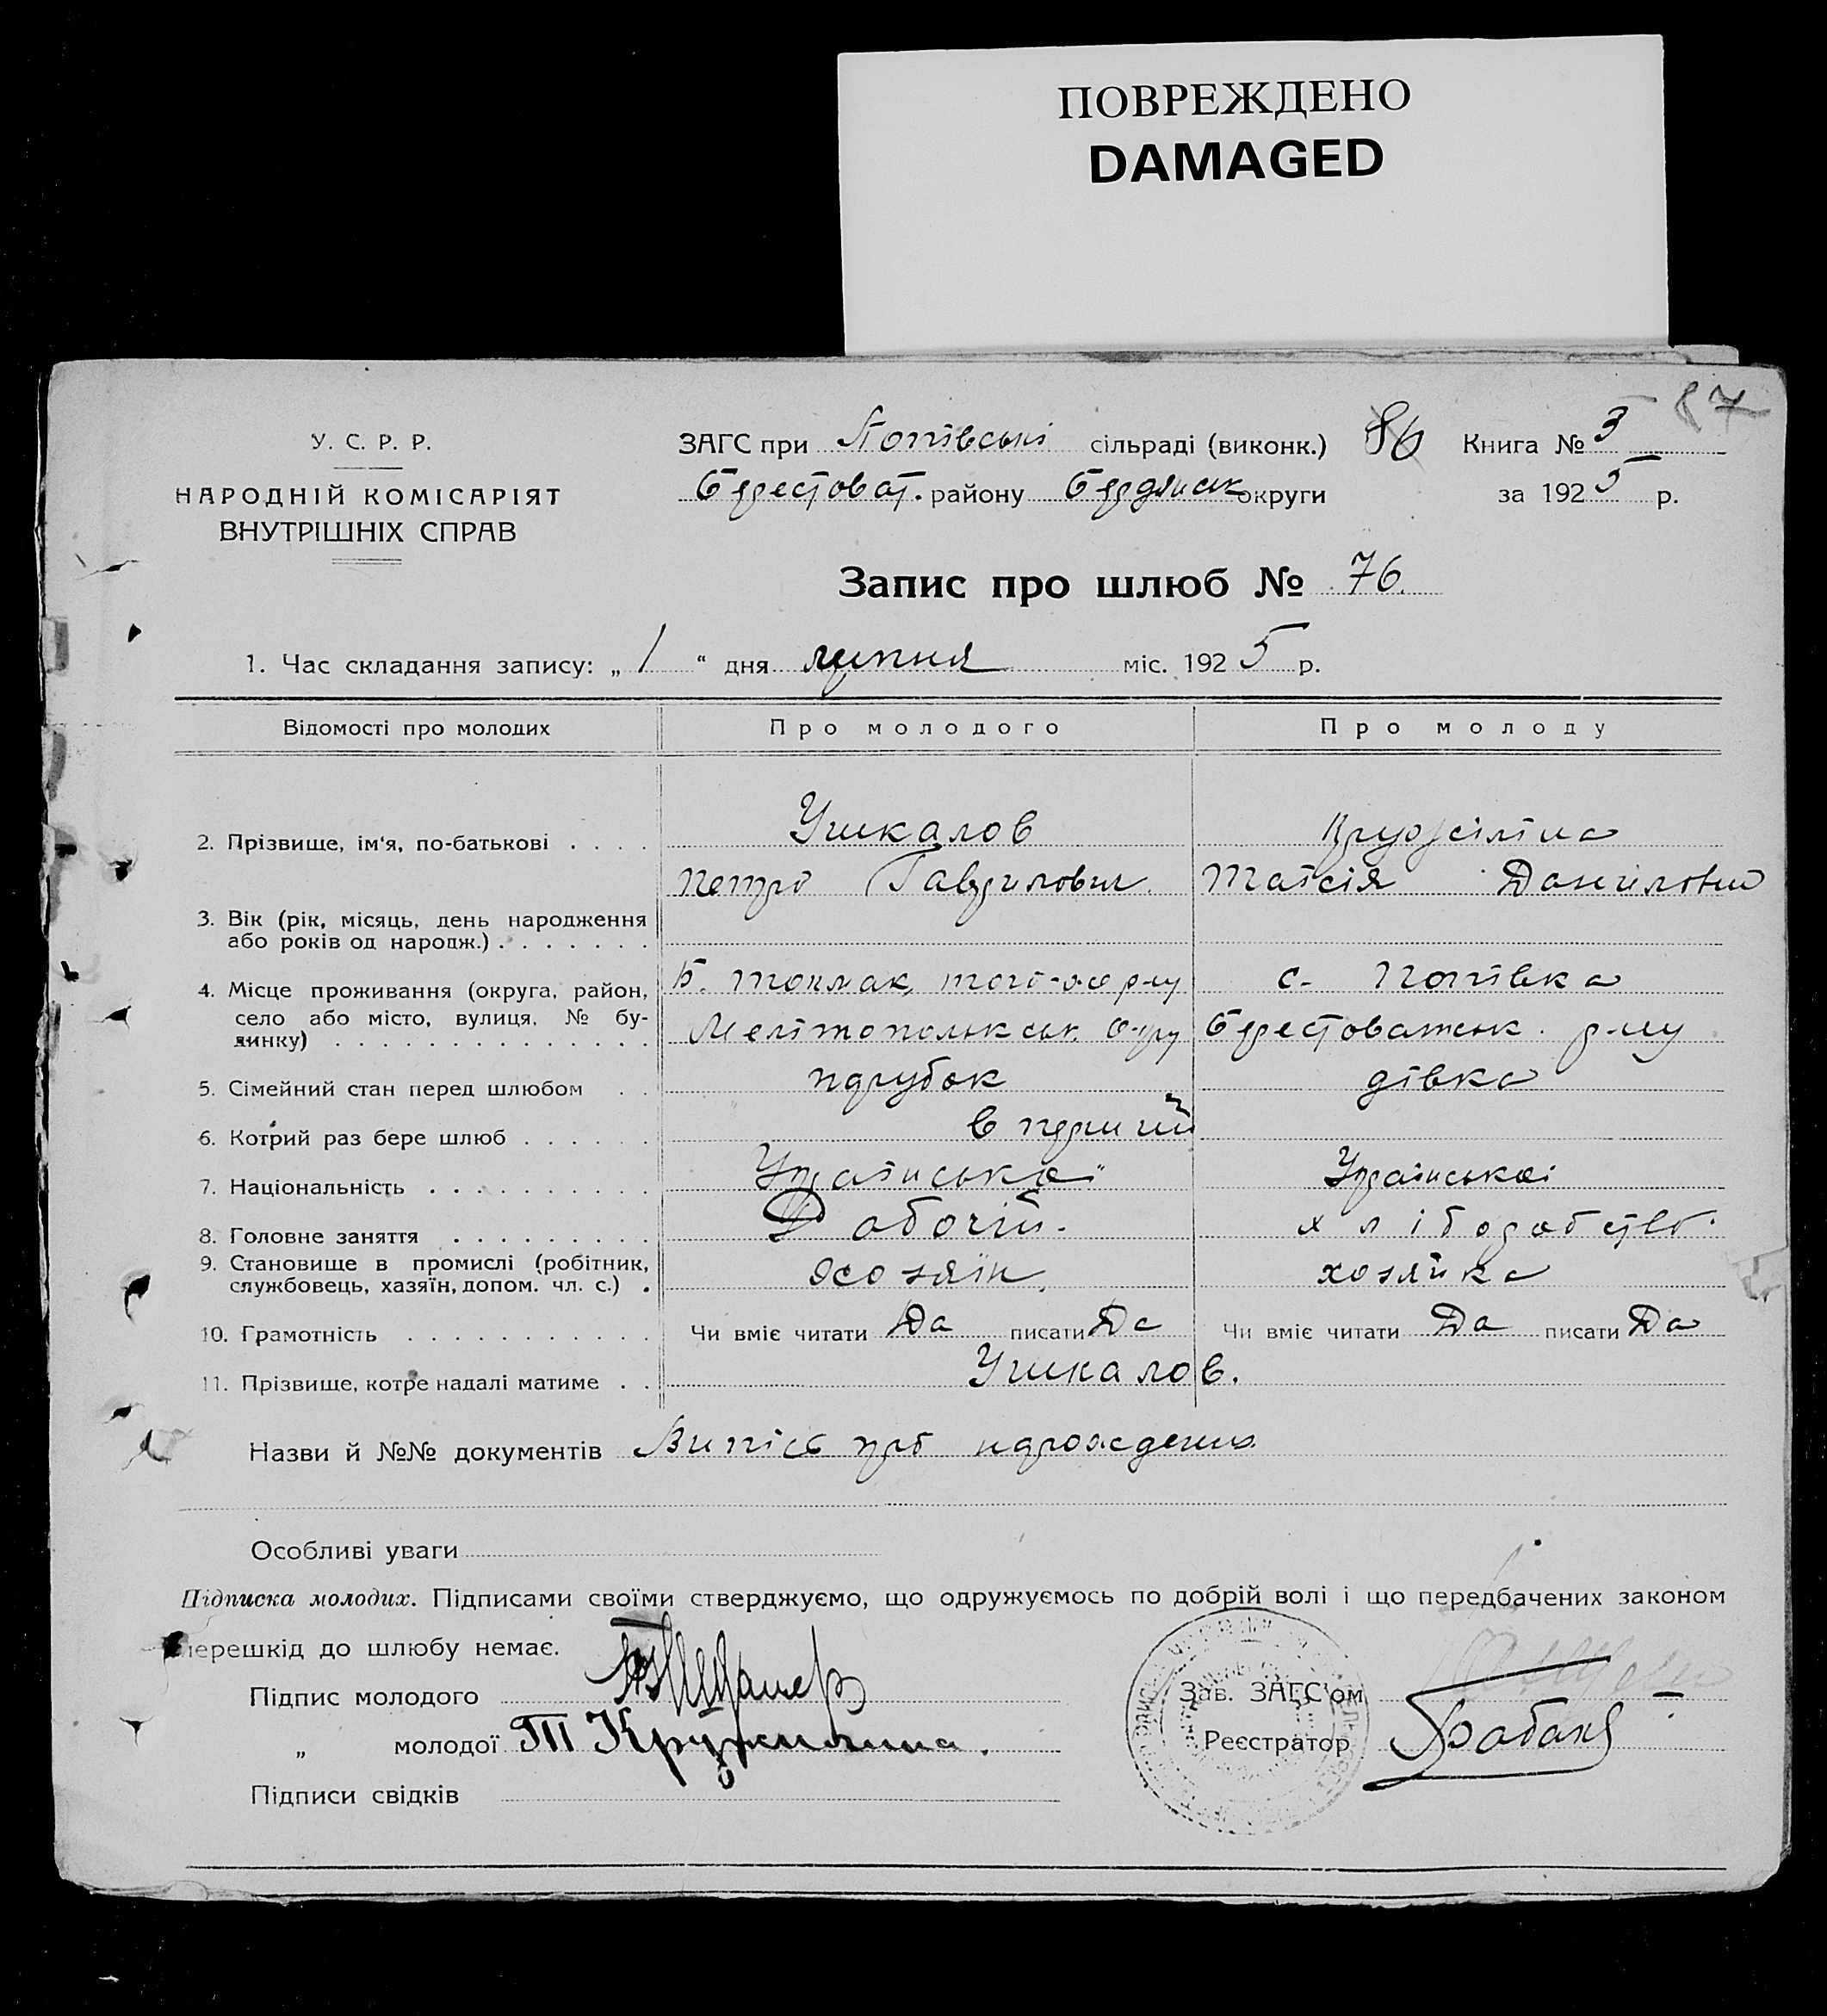 ПОВРЕЖДЕНО
DAMAGED
87
У. С. Р. Р.
НАРОДНІЙ КОМІСАРІЯТ
ВНУТРІШНІХ СПРАВ
ЗАГС при Попівські сільраді (виконк.) 86 Книга № 3
Берестоват. району Бердянськ округи за 1925 р.
Запис про шлюб № 76.
1. Час складання запису: „ 1 “ дня липня міс. 1925 р.
Відомості про молодих Про молодого Про молоду
2. Прізвище, ім'я, по-батькові . . . . Ушкалов Кружіліна
Петро Гаврилович Таісія Даниловна
3. Вік (рік, місяць, день народження
або років од народж.) . . . . . . .
4. Місце проживання (округа, район, Б. Токмак, того-же р-ну с. Попівка
село або місто, вулиця, № бу- Мелітопольськ. Окру Берестоватськ. р-ну
динку) . . . . . . . . . . . . . .
5. Сімейний стан перед шлюбом . . парубок дівка
6. Котрий раз бере шлюб . . . . . . в перший
7. Національність . . . . . . . . . . Українська Українська
8. Головне заняття . . . . . . . . . Робочій. хліборобство.
9. Становище в промислі (робітник,
службовець, хазяїн, допом. чл. с.) . хозяїн хозяйка
10. Грамотність . . . . . . . . . . . Чи вміє читати Да писати Да Чи вміє читати Да писати Да
11. Прізвище, котре надалі матиме . . Ушкалов.
Назви й №№ документів Випісь про нарождения
Особливі уваги
Підписка молодих. Підписами своїми стверджуємо, що одружуємось по добрій волі і що передбачених законом
перешкід до шлюбу немає.
Підпис молодого
Зав. ЗАГС'ом
„ молодої Т Кружилина.
Реєстратор
Підписи свідків